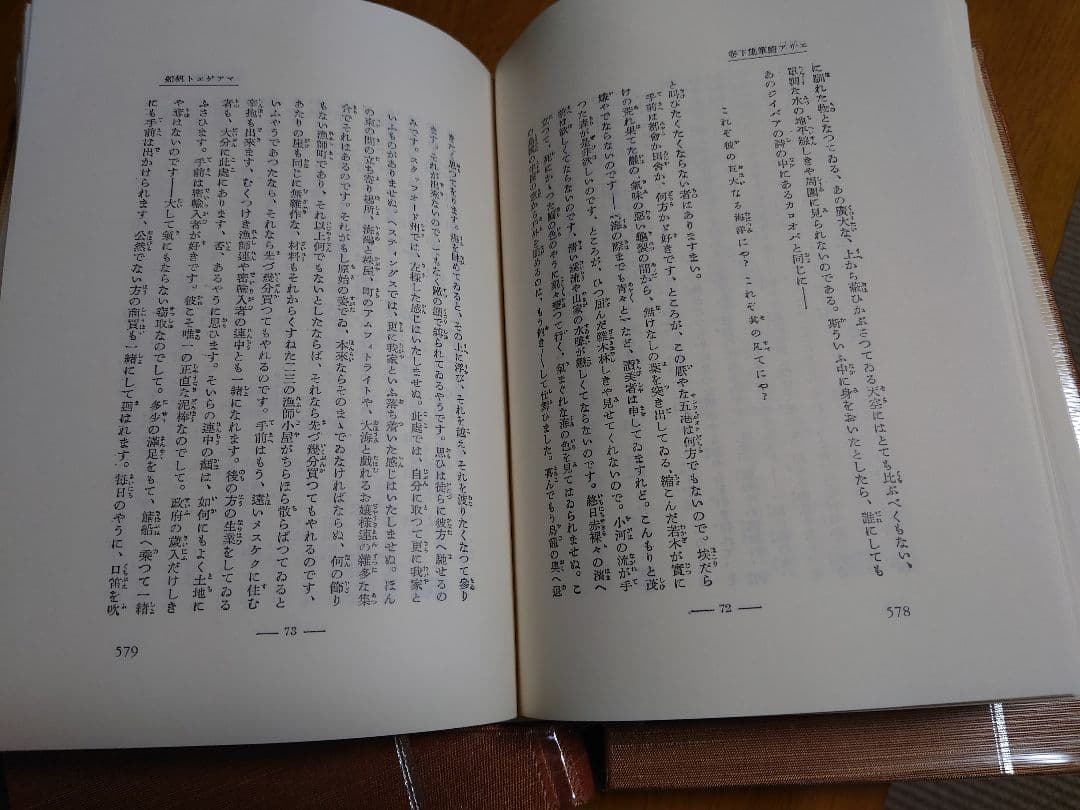 エリア隨筆集下巻
に馴れた物となつてゐる、あの廣大な、上から蔽ひかぶさつてゐる天空にはとても比ぶべくもない、
單調な水の地平線しきや周圍に見られないのである。斯ういふ中に身をおいたとしたら、誰にしても
あのジイバアの詩の中にあるカロオバと同じに——
これぞ彼の巨大なる海洋にや? これぞ其の凡てにや?
と叫びたくならない者はありますまい。
手前は都會か田舍か、何方かと好きです。ところが、この厭やな五港は何方でもないので。埃だら
けの荒れ果てた巖の、氣味の惡い龜裂の間から、無けなしの葉を突き出してゐる、縮こんだ若木が實に
嫌やでならないのです——『海の際までも靑々と』など、讃美者は申してゐますけれど。こんもりと茂
つた森が是非欲しいのです、ところが、ひつ屈んだ雜木林しきや見せてくれないので。小河の流が手
前は欲しくてならないのです、淸い溪流や山家の水嵩が戀しくてならないのです。終日赤裸々の濱へ
立つて、死にかゝつた鯔の色のやうに刻々變つて行く、氣まぐれな海の色を見てはゐられませぬ。こ
72
578
マアゲエト帆船
きたく思つて居ります。海を眺めてゐると、その上に浮び、それを越え、それを渡りたくなつて參り
ます。それが出來ないので、
みです。スタッフオード州では、左樣した感じはいたしませぬ。此處では、自分に取つて更に我家と
いふものがありませぬ。ヘスティングスでは、更に我家といふ落ち着いた感じはいたしませぬ。ほん
の束の間の立ち寄り場所、海鷗と株屋、町のアムフィトライトや、大海と戲れるお孃樣達の雜多な集
合でそれはあるのです。それがもし原始の姿でゐ、本來ならそのまゝでゐなければならぬ、何の飾り
もない漁師町であり、それ以上何でもないとしたならば、それなら先づ幾分買つてもやれるのです、
あたりの崖も同じに無雜作な、材料もそれからくすねた二三の漁師小屋がちらほら散らばつてゐると
いふやうであつたなら、それなら先づ幾分買つてもやれるのです。手前はもう、遠いメスケクに住む
事だ地も出來ます、むくつけき漁師達や密輸入者の連中とも一緒になれます。後の方の生業をしてゐる
者も、大分に此處にあります、否、あるやうに思ひます。そいらの連中の顏は、如何にもよく土地に
ふさひます。手前は密輸入者が好きです。彼こそ唯一の正直な泥棒なのでして。政府の歲入だけしき
や奪はないのです——大して氣にもならない竊取なのでして。多少の滿足をもて、鯖船へ乘つて一緒
にも手前は出かけられます、公然でない方の商賣も一緒にして廻はれます。每日のやうに、口笛を吹
73
579